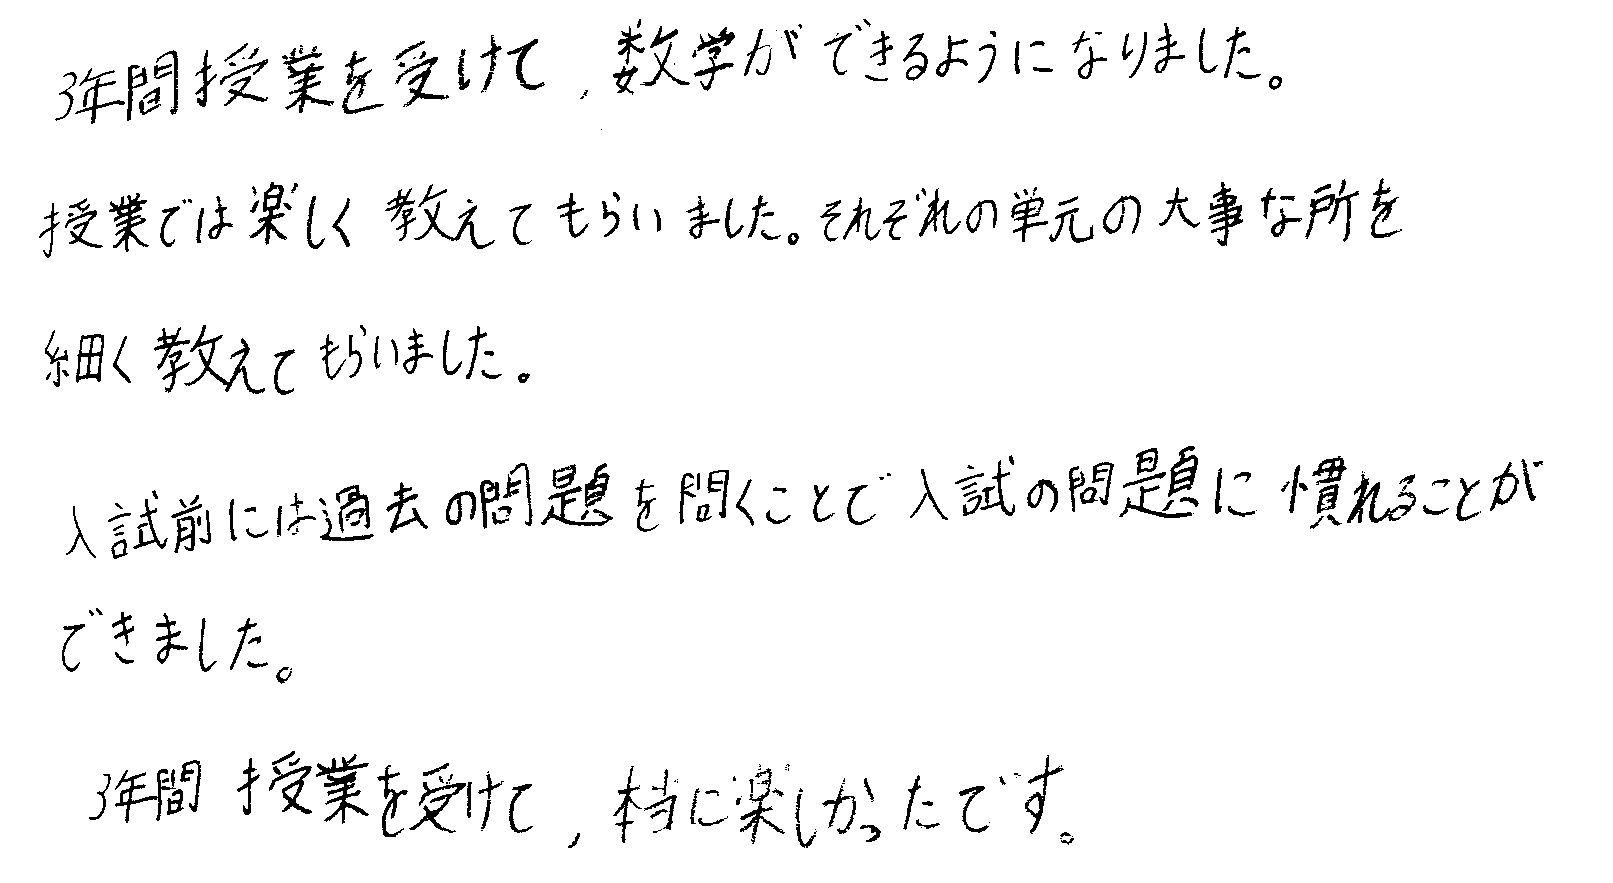 3年間授業を受けて,数学ができるようになりました。
授業では楽しく教えてもらいました。それぞれの単元の大事な所を
細く教えてもらいました。
入試前には過去の問題を問くことで入試の問題に慣れることが
できました。
3年間授業を受けて,本当に楽しかったです。